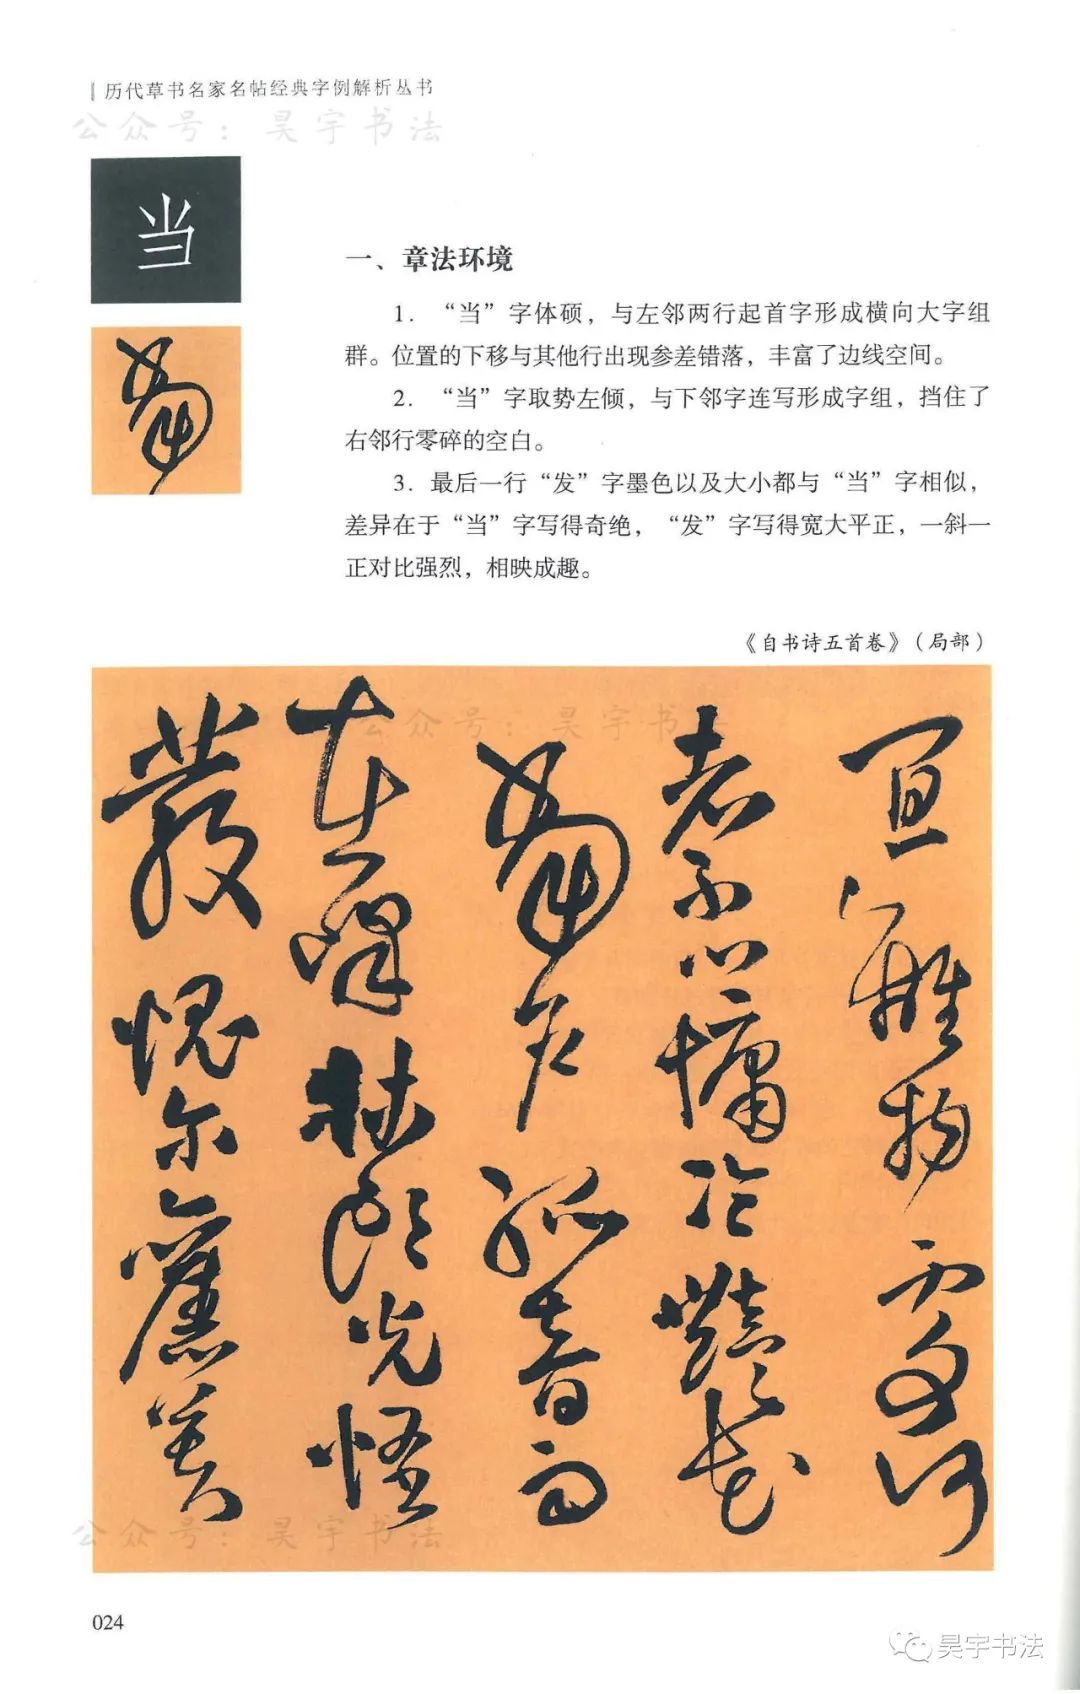 历代草书名家名帖经典字例解析丛书
公众号：昊宇书法
当
一、章法环境
1．“当”字体硕，与左邻两行起首字形成横向大字组
群。位置的下移与其他行出现参差错落，丰富了边线空间。
2．“当”字取势左倾，与下邻字连写形成字组，挡住了
右邻行零碎的空白。
3．最后一行“发”字墨色以及大小都与“当”字相似，
差异在于“当”字写得奇绝，“发”字写得宽大平正，一斜一
正对比强烈，相映成趣。
《自书诗五首卷》（局部）
公众号：昊宇书法
老不心慵
孤音而
光怪
發愧尔
公众号：昊宇书法
024
昊宇书法